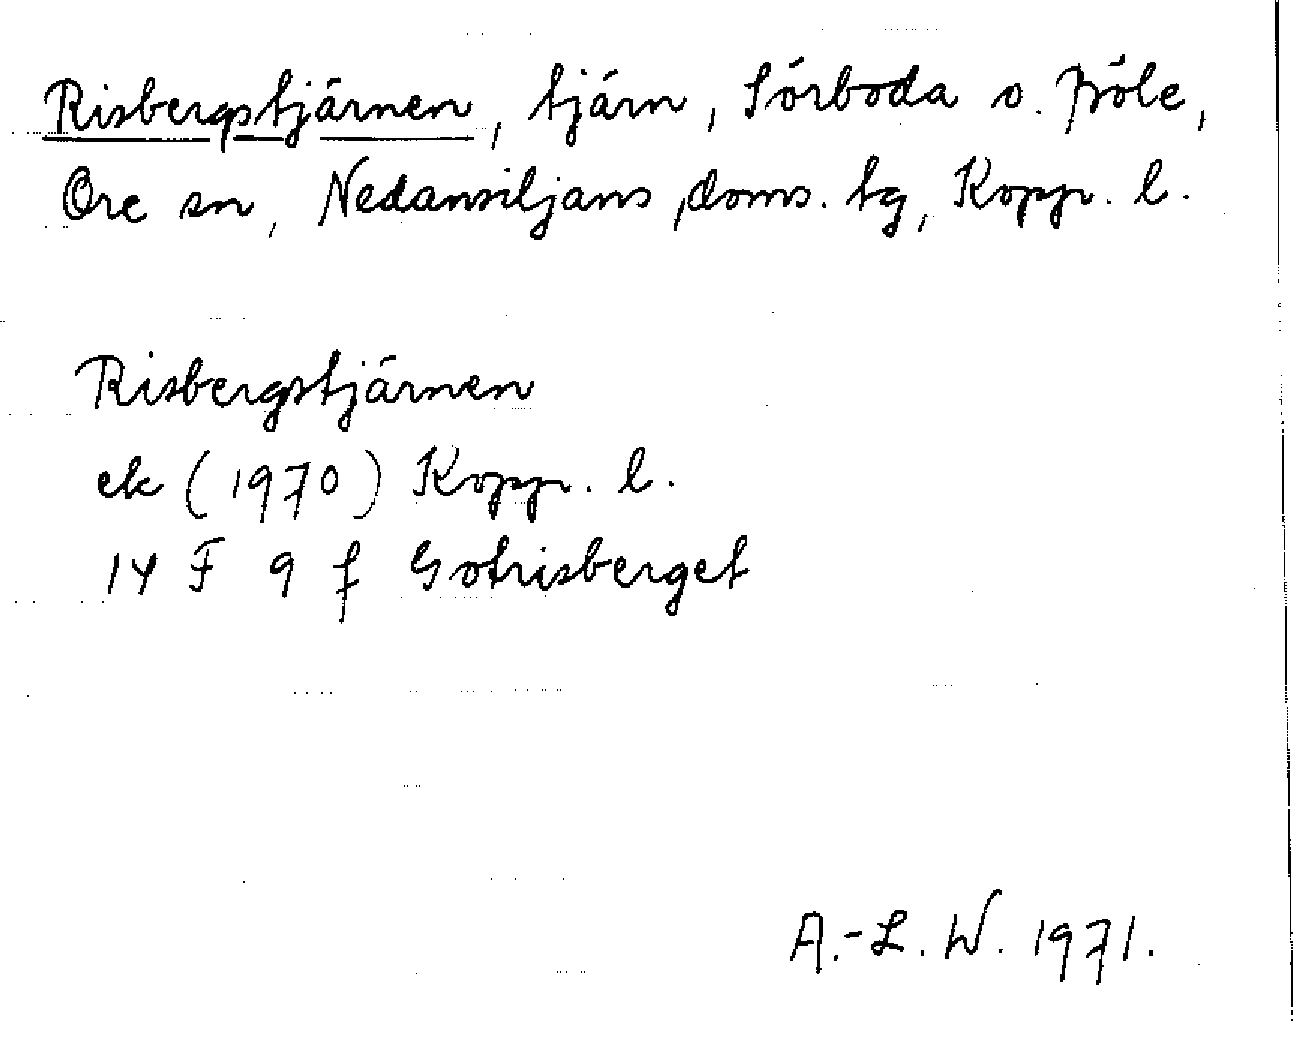 Risbergstjärnen, tjärn, Sörboda o. Pöle,
Ore sn, Nedansiljans doms. tg, Kopp. l.
Risbergstjärnen
ek (1970) Kopp. l.
14 F 9 f Gotrisberget
A.-L. W. 1971.